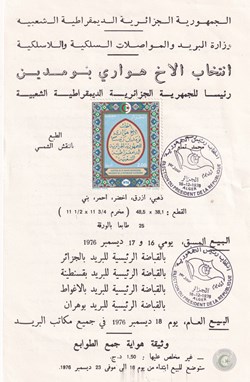 الجمهورية الجزائرية الديمقراطية الشعبية
وزارة البريد والمواصلات السلكية واللاسلكية
انتخاب الأخ هواري بومدين
رئيسا للجمهورية الجزائرية الديمقراطية الشعبية
الطبع
بالنقش الشمسي
ذهبي، ازرق، اخضر، احمر، بني
القطع : 36,1 × 48,5 ( مخرم 11 3/4 × 11 1/2 )
25 طابعا بالورقة
البيع المسبق، يومي 16 و 17 ديسمبر 1976
بالقباضة الرئيسية للبريد بالجزائر
بالقباضة الرئيسية للبريد بقسنطينة
بالقباضة الرئيسية للبريد بالاغواط
بالقباضة الرئيسية للبريد بوهران
البيع العام، يوم 18 ديسمبر 1976 في جميع مكاتب البريد
وثيقة هواية جمع الطوابع
— غير مخلص عليها : 1,50 د.ج.
ستوضع للبيع ابتداء من 18 الى موفى 23 ديسمبر 1976